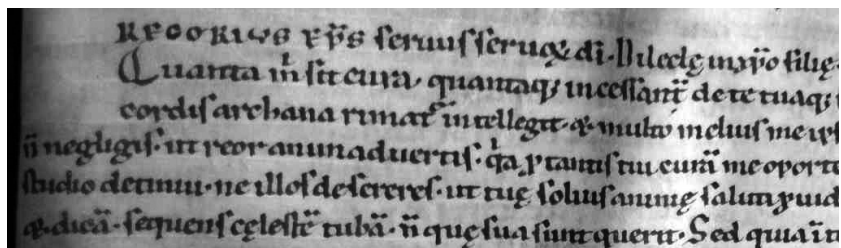 REGORIUS ep̄s seruus seruoꝝ di. Dilectę in xp̄o filię
Quanta m̊ sit cura, quantaq; incessant̄ de te tuaq;
cordis archana rimat᷑ intellegit. & multo melius me ips
n̄ negligis. ut reor animaduertis. qa ꝓ tantis tui curā me oporte
studio detinui. ne illos desereres. ut tuę solius animę saluti ꝓuid
& dicā. sequens cęlestē tubā. n̄ quę sua sunt querit. Sed quia īt